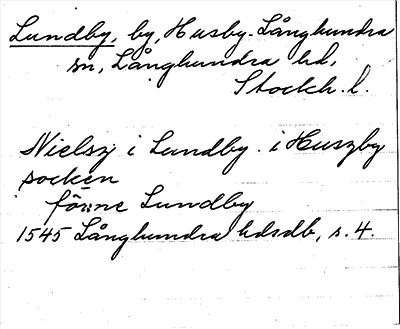 Lundby, by, Husby-Långhundra
sn, Långhundra hd,
Stockh. l.
Nielsz i Lundby i Huszby
socken
förne Lundby
1545 Långhundra hdsdb, s. 4.